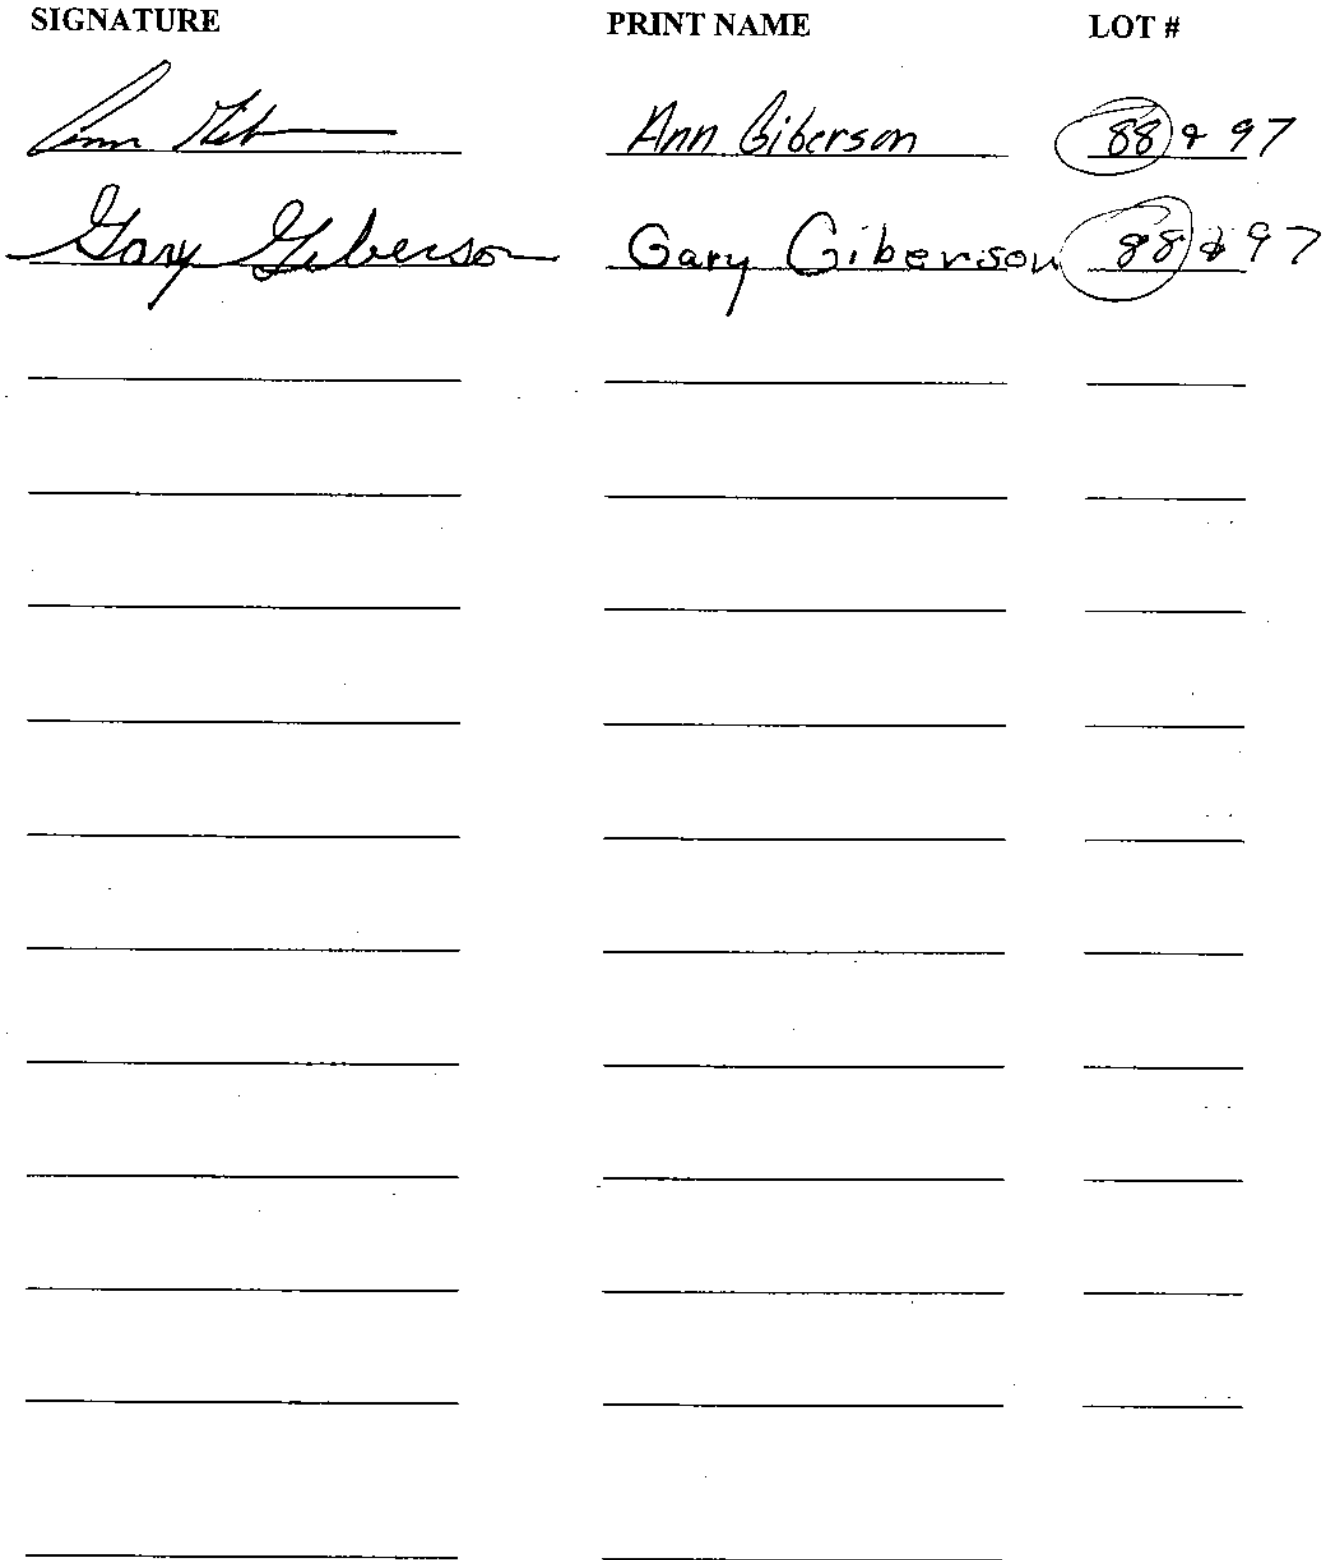 SIGNATURE PRINT NAME LOT #
Ann Gib Ann Giberson 88 & 97
Gary Giberson Gary Giberson 88 & 97